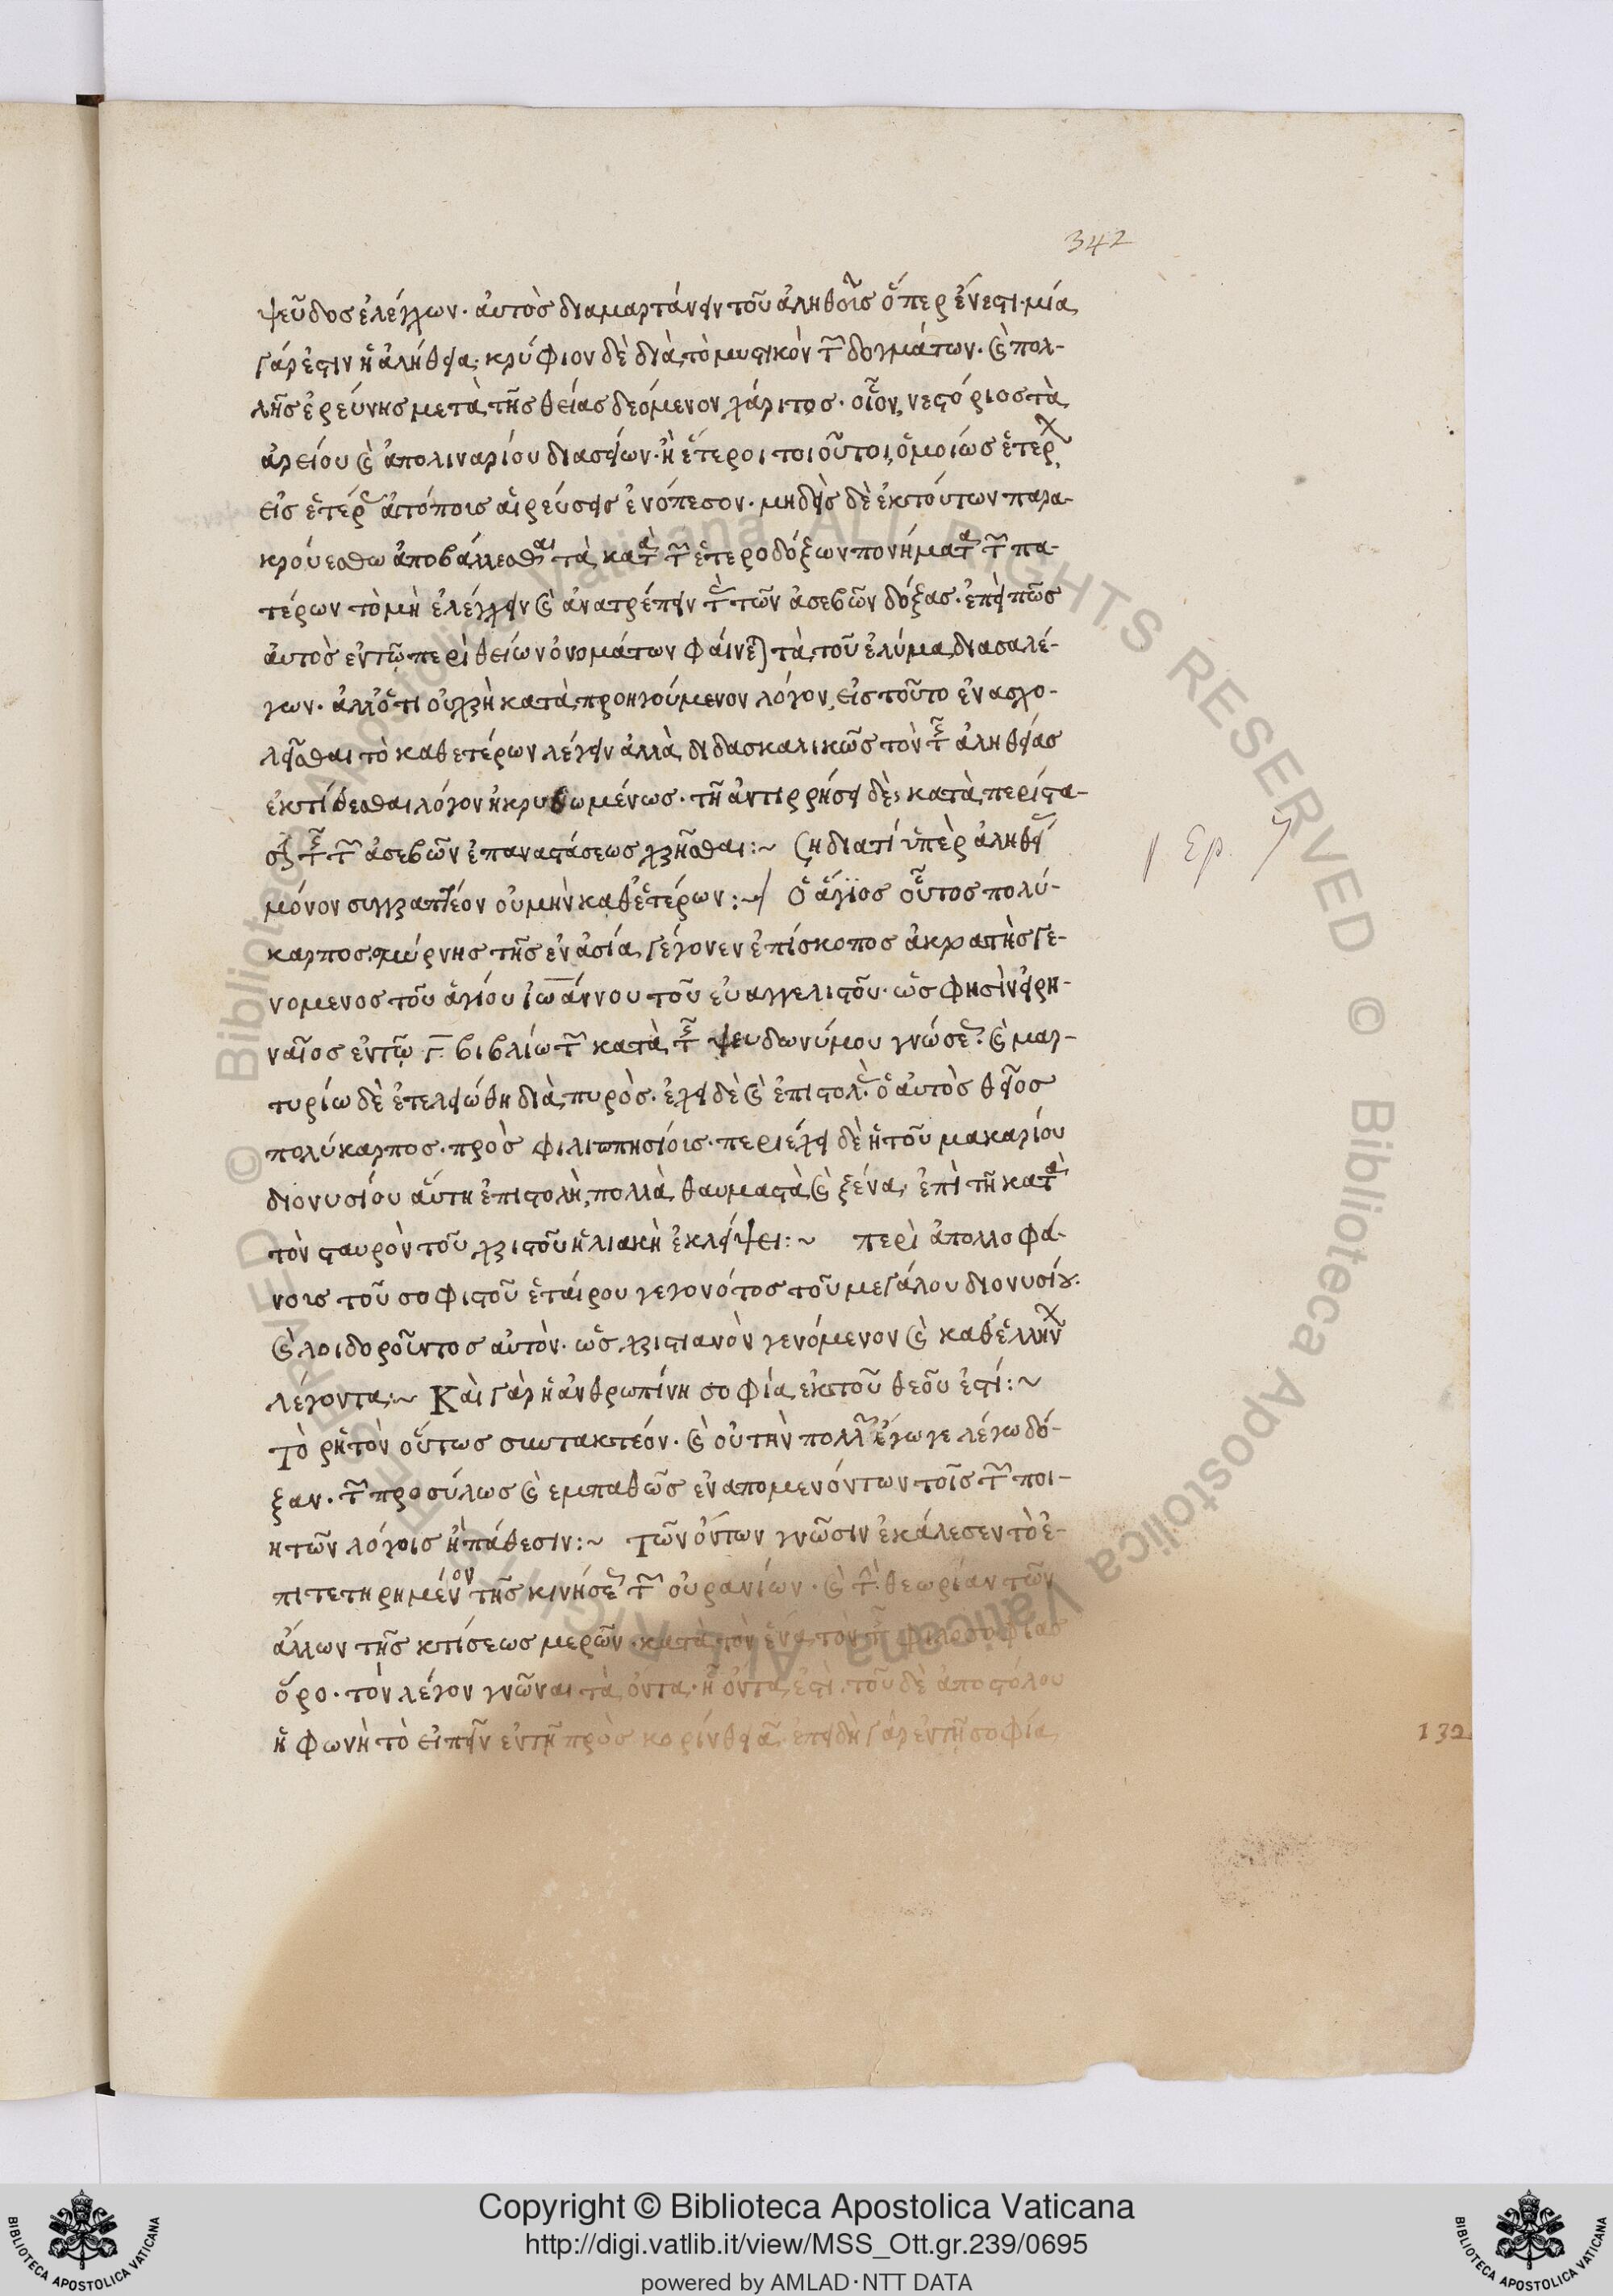 342
ψεῦδος ἐλέγχων· αὐτὸς διαμαρτάνειν τοῦ ἀληθοῦς ὅπερ ἕν ἐστι· μία
γάρ ἐστιν ἡ ἀλήθεια· κρύφιον δὲ διὰ τὸ μυστικὸν τῶν δογμάτων· καὶ πολ-
λῆς ἐρεύνης μετὰ τῆς θείας δεόμενον χάριτος· οἷον, νεστόριος τὰ
ἀρείου καὶ ἀπολιναρίου διασείων· ἢ ἕτεροι τοιοῦτοι, ὁμοίως ἑτέρων
εἰς ἑτέρας ἀτόποις αἱρέσεις ἐνέπεσον· μηδεὶς δὲ ἐκ τούτων παρα-
κρουέσθω ἀποβάλλεσθαι τὰ κατὰ τῶν ἑτεροδόξων πονήματα τῶν πα-
τέρων τὸ μὴ ἐλέγχειν καὶ ἀνατρέπειν τὰς τῶν ἀσεβῶν δόξας· ἐπεὶ πῶς
αὐτὸς ἐν τῷ περὶ θείων ὀνομάτων φαίνεται τὰ τοῦ ἐλύμα διασαλέ-
γων· ἀλλ' ὅτι οὐ χρὴ κατὰ προηγούμενον λόγον, εἰς τοῦτο ἐνασχο-
λεῖσθαι τὸ καθ' ἑτέρων λέγειν ἀλλὰ διδασκαλικῶς τὸν τῆς ἀληθείας
ἐκτίθεσθαι λόγον ἠκριβωμένως· τῇ ἀντιρρήσει δὲ, κατὰ περίστα-
σιν τῆς τῶν ἀσεβῶν ἐπαναστάσεως χρῆσθαι:~ ζη διατί ὑπὲρ ἀληθείας
μόνον συγγραπτέον οὐ μὴν καθ' ἑτέρων:~/ Ὁ ἅγϊος οὗτος πολύ-
καρπος, σμύρνης τῆς ἐν ἀσίᾳ γέγονεν ἐπίσκοπος ἀκροατὴς γε-
νόμενος τοῦ ἁγίου ἰωάννου τοῦ εὐαγγελιστοῦ· ὥς φησὶν εἰρη-
ναῖος ἐν τῷ γ̅ βιβλίω τῶν κατὰ τῆς ψευδωνύμου γνώσεως· καὶ μαρ-
τυρίω δὲ ἐτελειώθη διὰ πυρὸς· ἔχει δὲ καὶ ἐπιστολὰς ὁ αὐτὸς θεῖος
πολύκαρπος· πρὸς φιλιππησίοις· περιέχει δὲ ἡ τοῦ μακαρίου
διονυσίου αὕτη ἐπιστολὴ, πολλὰ θαυμαστὰ καὶ ξένα· ἐπὶ τῇ κατὰ
τὸν σταυρὸν τοῦ χριστοῦ ἡλιακῆ ἐκλείψει:~ περὶ ἀπολλοφά-
νους τοῦ σοφιστοῦ ἑταίρου γεγονότος τοῦ μεγάλου διονυσίου·
καὶ λοιδοροῦντος αὐτὸν· ὡς χριστιανὸν γενόμενον καὶ καθ' ἑλλήνων
λέγοντα:~ Καὶ γὰρ ἡ ἀνθρωπίνη σοφία, ἐκ τοῦ θεοῦ ἐστί:~
Τὸ ῥητὸν οὕτως συντακτέον· καὶ οὐ τὴν πολλῶν ἔγωγε λέγω δό-
ξαν· τῶν προσύλως καὶ ἐμπαθῶς ἐναπομενόντων τοῖς τῶν ποι-
ητῶν λόγοις ἢ πάθεσιν:~ Τῶν ὄντων γνῶσιν ἐκάλεσεν τὸ ἐ-
πιτετηρημένον τῆς κινήσεως τῶν οὐρανίων· καὶ τὴν θεωρίαν τῶν
ἄλλων τῆς κτίσεως μερῶν· κατὰ τὸν ἕνα τὸν τῆς φιλοσοφίας
ὅρο· τὸν λέγον γνῶναι τὰ ὄντα· ἧ ὄντα ἐστί· τοῦ δὲ ἀποστόλου
ἡ φωνὴ τὸ εἰπεῖν ἐν τῇ πρὸς κορίνθϊα· ἐπειδὴ γὰρ ἐν τῇ σοφία
Ep. 7
132
Copyright © Biblioteca Apostolica Vaticana
http://digi.vatlib.it/view/MSS_Ott.gr.239/0695
powered by AMLAD·NTT DATA